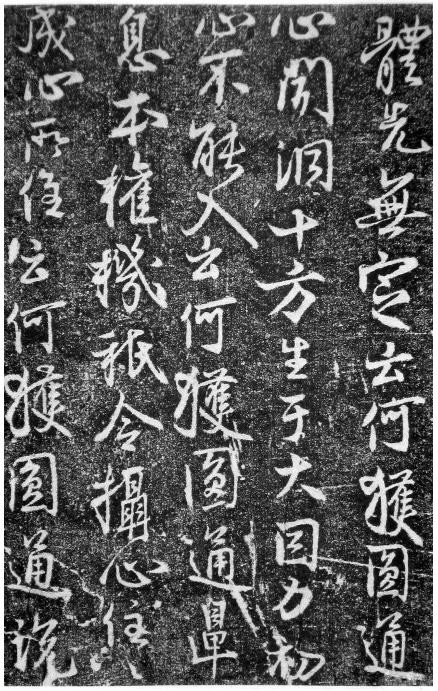 體先無定云何獲圓通
心聞洞十方生于大因力初
心不能入云何獲圓通鼻
息本權機秖令攝心住々
成心所住云何獲圓通說